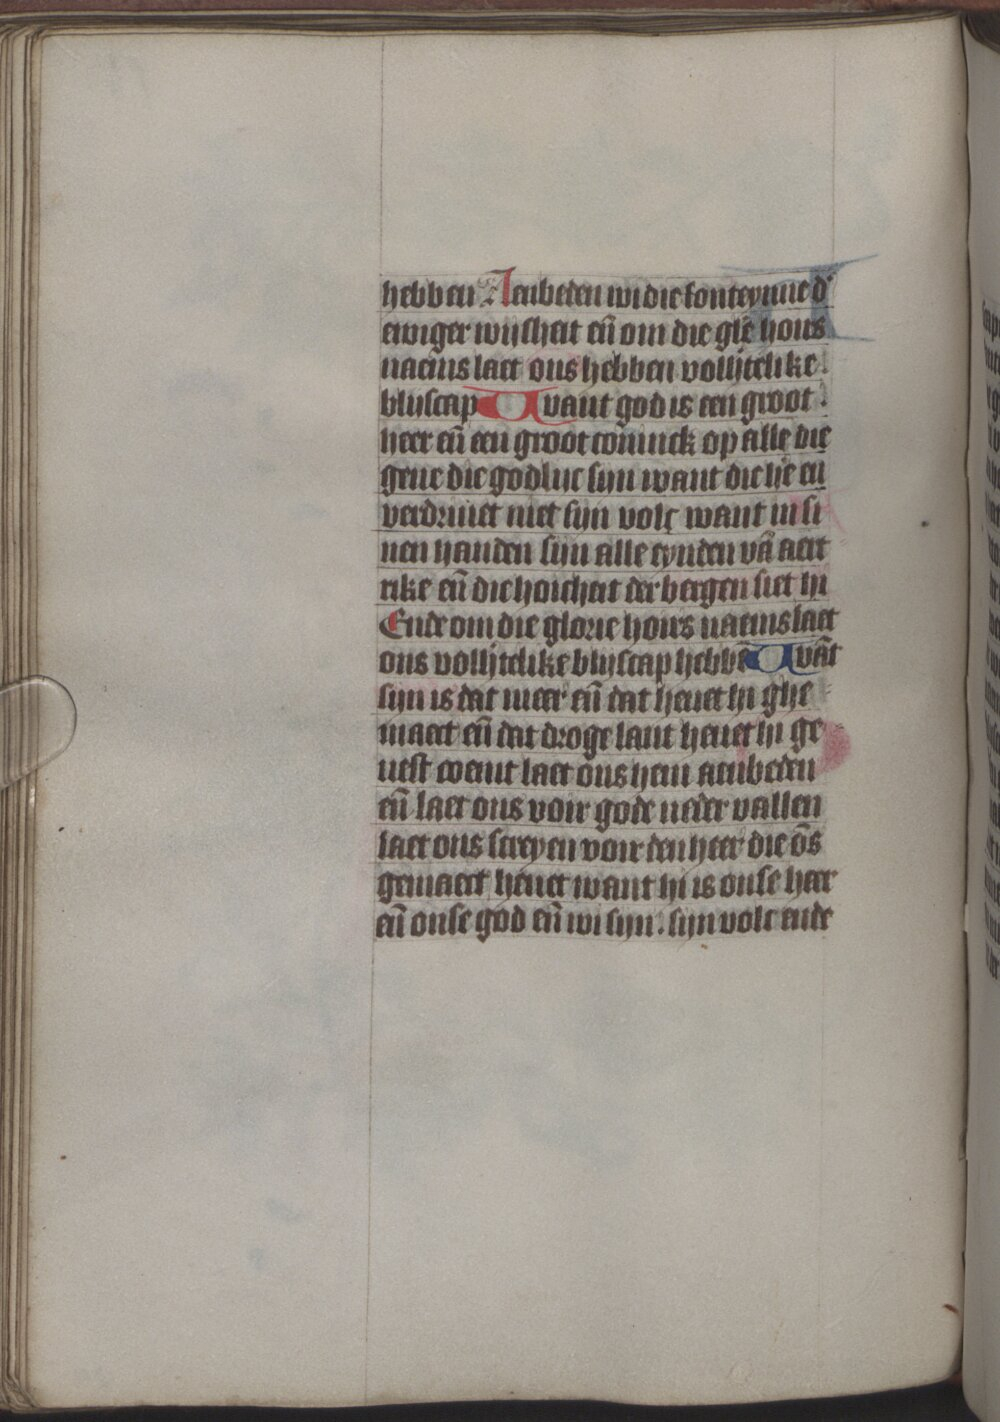 hebben Aenbeden wi die fonteynne d'
ewiger wijsheit en̄ om die glē hons
naems laet ons hebben vollijtelike
blijscap Want god is een groot
heer en̄ een groot coninck op alle die
gene die godlijc sijn want die hē en
verdriuet niet sijn volc want in si
nen handen sijn alle eynden vā aert
rike en̄ die hoicheit der bergen siet hi
Ende om die glorie honrs naems laet
ons vollijtelike blijscap hebbē Wāt
sijn is dat meer en̄ dat heuet hi ghe
maect en̄ dat droge lant heuet hi ge
uest coemt laet ons hem aenbeden
en̄ laet ons voir gode neder vallen
laet ons screyen voir den heer die ōs
gemaect heuet want hi is onse heer
en̄ onse god en̄ wi sijn sijn volc ende